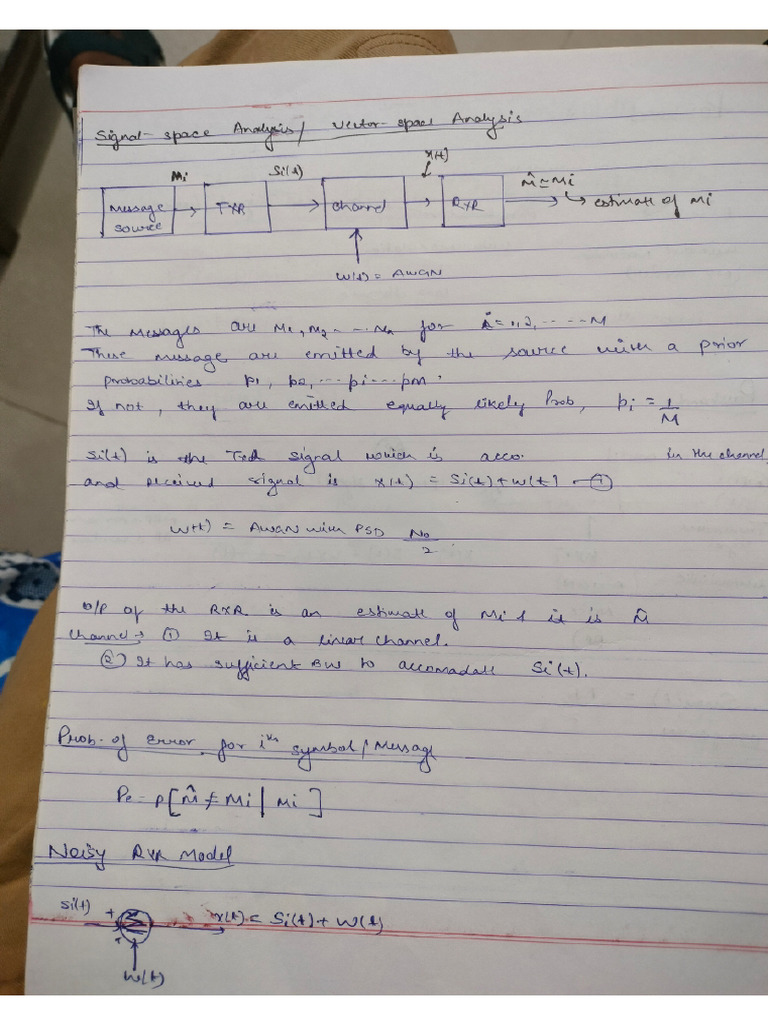 Signal-space Analysis/ Vector-space Analysis
Mi Si(t) x(t)
Message source TXR Channel RXR M̂ ≃ Mi
estimate of Mi
W(t) = AWGN
The Messages are M1, M2 - - . . Mn for i = 1, 2, - - - - - M
These message are emitted by the source with a prior
probabilities p1, p2, ... pi ... pm.
If not, they are emitted equally likely Prob, pi = 1/M
Si(t) is the Txd signal which is acco. in the channel,
and received signal is x(t) = Si(t) + W(t) —①
W(t) = AWGN with PSD No/2
O/P of the RXR is an estimate of Mi & it is M̂
Channel → ① It is a linear channel.
② It has sufficient BW to accomadate Si(t).
Prob. of error for ith symbol / Message
Pe = P[M̂ ≠ Mi | Mi]
Noisy RXR Model
Si(t) + Σ x(t) = Si(t) + W(t)
+
W(t)